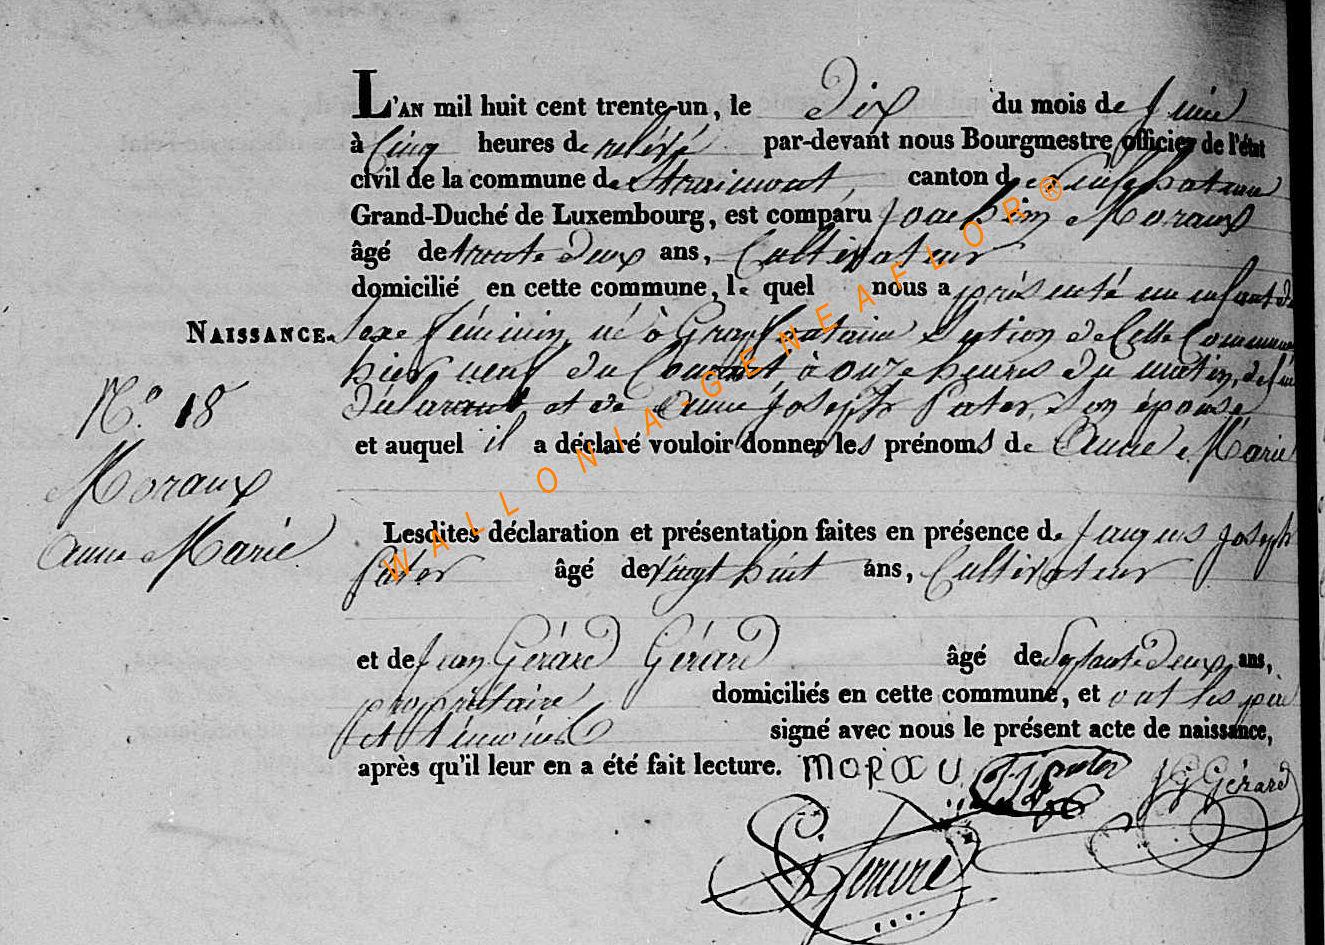 L'AN mil huit cent trente-un, le Dix du mois de Juin
à Cinq heures de relevé par-devant nous Bourgmestre officier de l'état
civil de la commune de Straimont, canton de Neufchateau
Grand-Duché de Luxembourg, est comparu Joachim Moraux
âgé de trente deux ans, Cultivateur
domicilié en cette commune, le quel nous a présenté un enfant du
NAISSANCE. sexe féminin, né à Grapfontaine Section de Cette Commune
hier neuf du Courant à onze heures du matin, de lui
déclarant, et de Anne Joseph Pater, Son épouse
et auquel il a déclaré vouloir donner les prénoms de Anne Marie
N.º 18
Moraux
Anne Marie
Lesdites déclaration et présentation faites en présence de Jaques Joseph
Pater âgé de Vingt huit ans, Cultivateur
et de Jean Gérard Gérard âgé de Septante Deux ans,
propriétaire domiciliés en cette commune, et ont les père
et témoins signé avec nous le présent acte de naissance,
après qu'il leur en a été fait lecture. MORAU J J Pater J G Gérard
WALLONIA-GENEAFLOR®